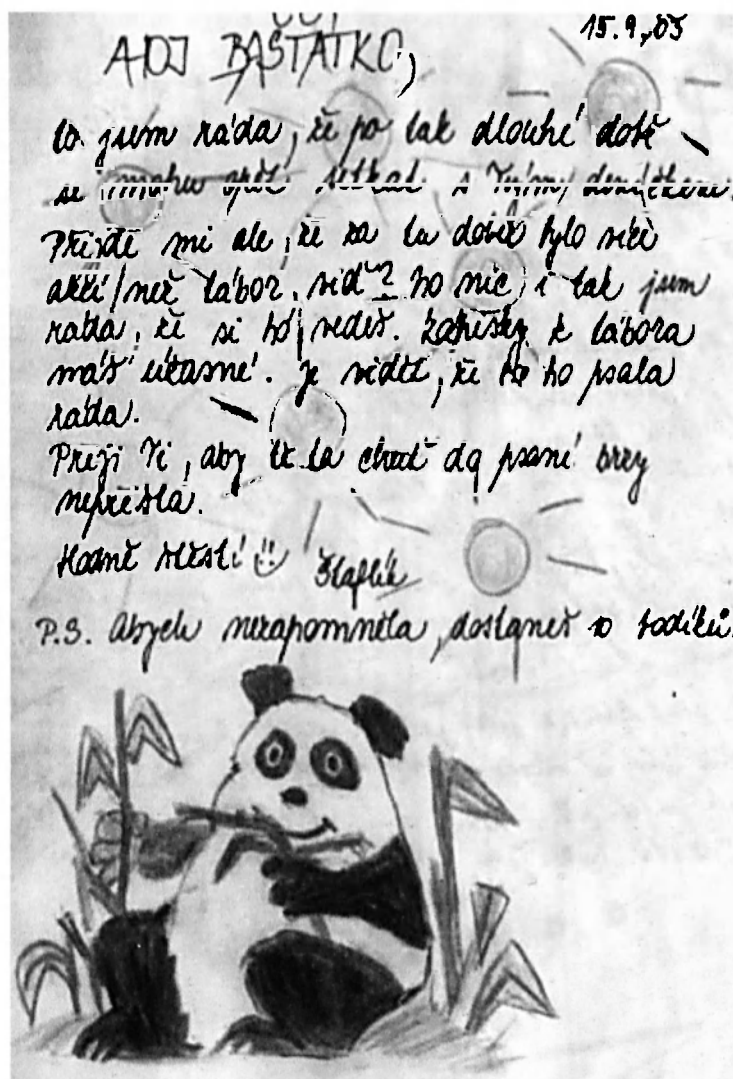 15.9.,03
AHOJ BAŠŤÁTKO,
to jsem ráda, že po tak dlouhé době
se mohu opět setkat s Tvým deníčkem.
Přijde mi ale, že za tu dobu bylo více
akcí než tábor, viď? No nic, i tak jsem
ráda, že si ho vedeš. Zápisky k táboru
máš úžasné. Je vidět, že ho psala
ráda.
Přeji Ti, aby tě ta chuť do psaní brzy
nepřešla.
Hodně štěstí!! Štaflík
P.S. Abych nezapomněla, dostaneš 10 bodíků.